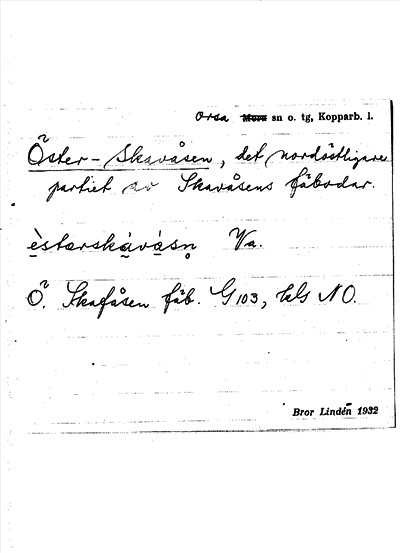 Orsa Mora sn o. tg, Kopparb. l.
Öster-Skavåsen, det nordöstligare
partiet av Skavåsens fäbodar.
èstarskàvàsn̥ Va.
Ö. Skafåsen fäb. G 103, kls NO.
Bror Lindén 1932